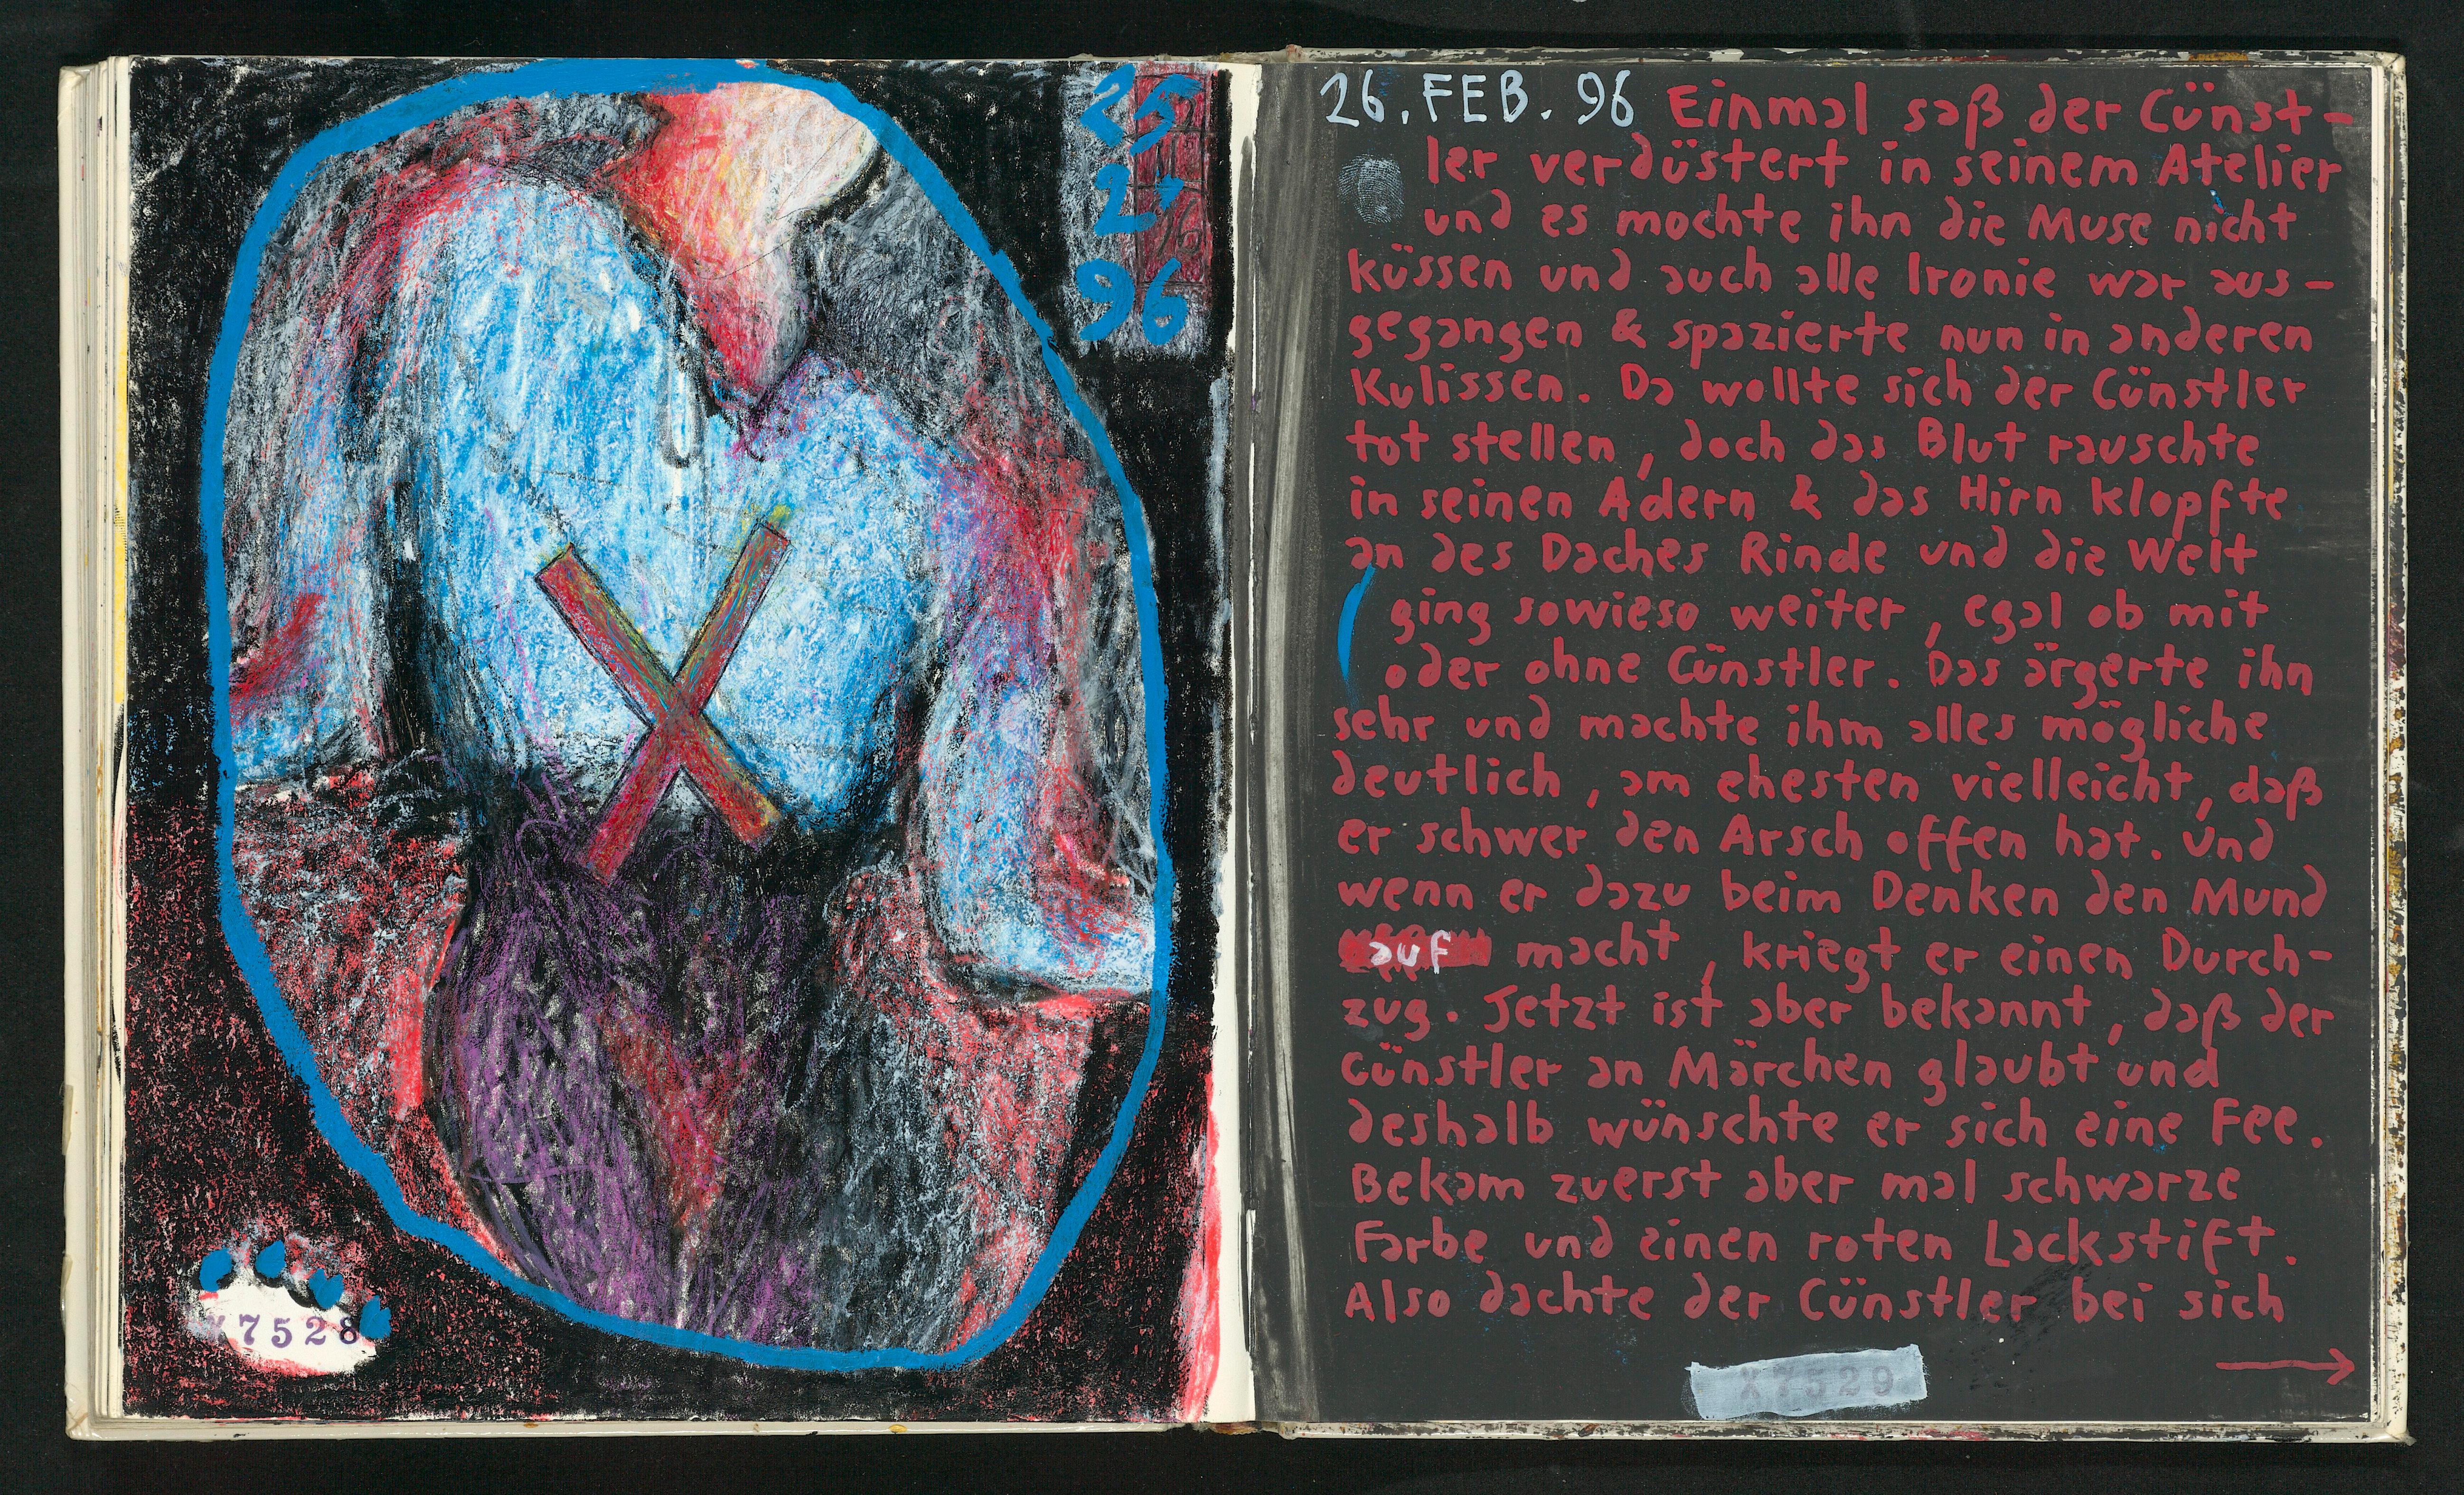 25
2.
96
X7528
26. FEB. 96 Einmal saß der Cünst-
ler verdüstert in seinem Atelier
und es mochte ihn die Muse nicht
küssen und auch alle Ironie war aus-
gegangen & spazierte nun in anderen
Kulissen. Da wollte sich der Cünstler
tot stellen, doch das Blut rauschte
in seinen Adern & das Hirn klopfte
an des Daches Rinde und die Welt
ging sowieso weiter, egal ob mit
oder ohne Cünstler. Das ärgerte ihn
sehr und machte ihm alles mögliche
deutlich, am ehesten vielleicht, daß
er schwer den Arsch offen hat. Und
wenn er dazu beim Denken den Mund
auf macht, kriegt er einen Durch-
zug. Jetzt ist aber bekannt, daß der
Cünstler an Märchen glaubt und
deshalb wünschte er sich eine Fee.
Bekam zuerst aber mal schwarze
Farbe und einen roten Lackstift.
Also dachte der Cünstler bei sich
X7529